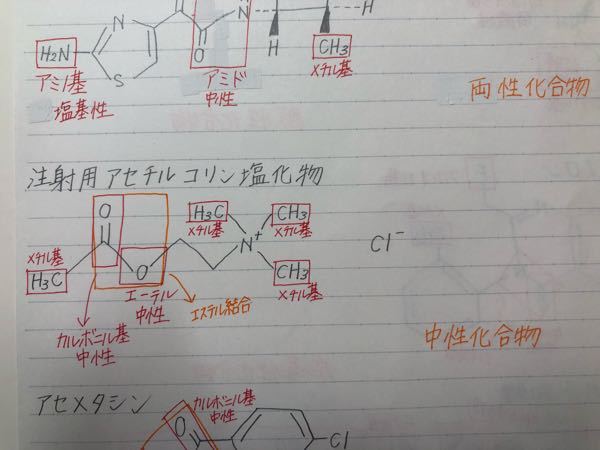 N
H
H₂N
N
S
O
H
CH₃
アミノ基
塩基性
アミド
中性
メチル基
両性化合物
注射用アセチルコリン塩化物
O
H₃C
メチル基
CH₃
メチル基
N⁺
Cl⁻
メチル基
H₃C
O
CH₃
メチル基
エーテル
中性
エステル結合
カルボニル基
中性
中性化合物
アセメタシン
カルボニル基
中性
O
Cl